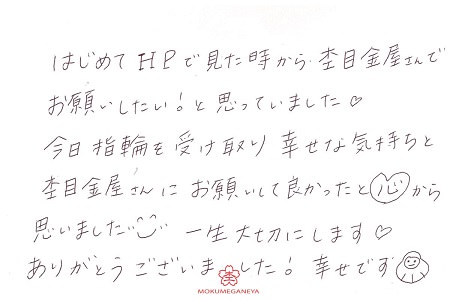 はじめてHPで見た時から杢目金屋さんで
お願いしたい!と思っていました♡
今日指輪を受け取り幸せな気持ちと
杢目金屋さんにお願いして良かったと心から
思いました 一生大切にします♡
ありがとうございました!幸せです
MOKUMEGANEYA